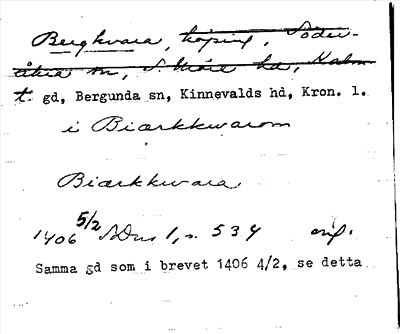 Bergkvara, köping, Söder-
åkra sn, S. Möre hd, Kalm.
t. gd, Bergunda sn, Kinnevalds hd, Kron. l.
i Biærkkwarom
Biærkkwara
1406 5/2 SDns 1, s. 534 orig.
Samma gd som i brevet 1406 4/2, se detta